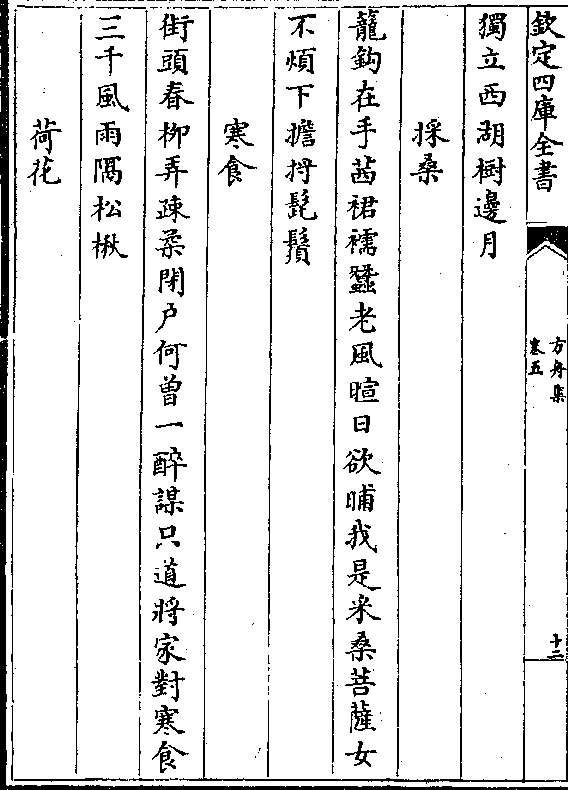 欽定四庫全書
方舟集
卷五
十二
獨立西湖樹邊月
採桑
籠鈎在手茜裙襦蠶老風暄日欲晡我是采桑菩薩女
不煩下擔捋髭鬚
寒食
街頭春柳弄疎柔閉户何曽一醉謀只道將家對寒食
三千風雨隔松楸
荷花